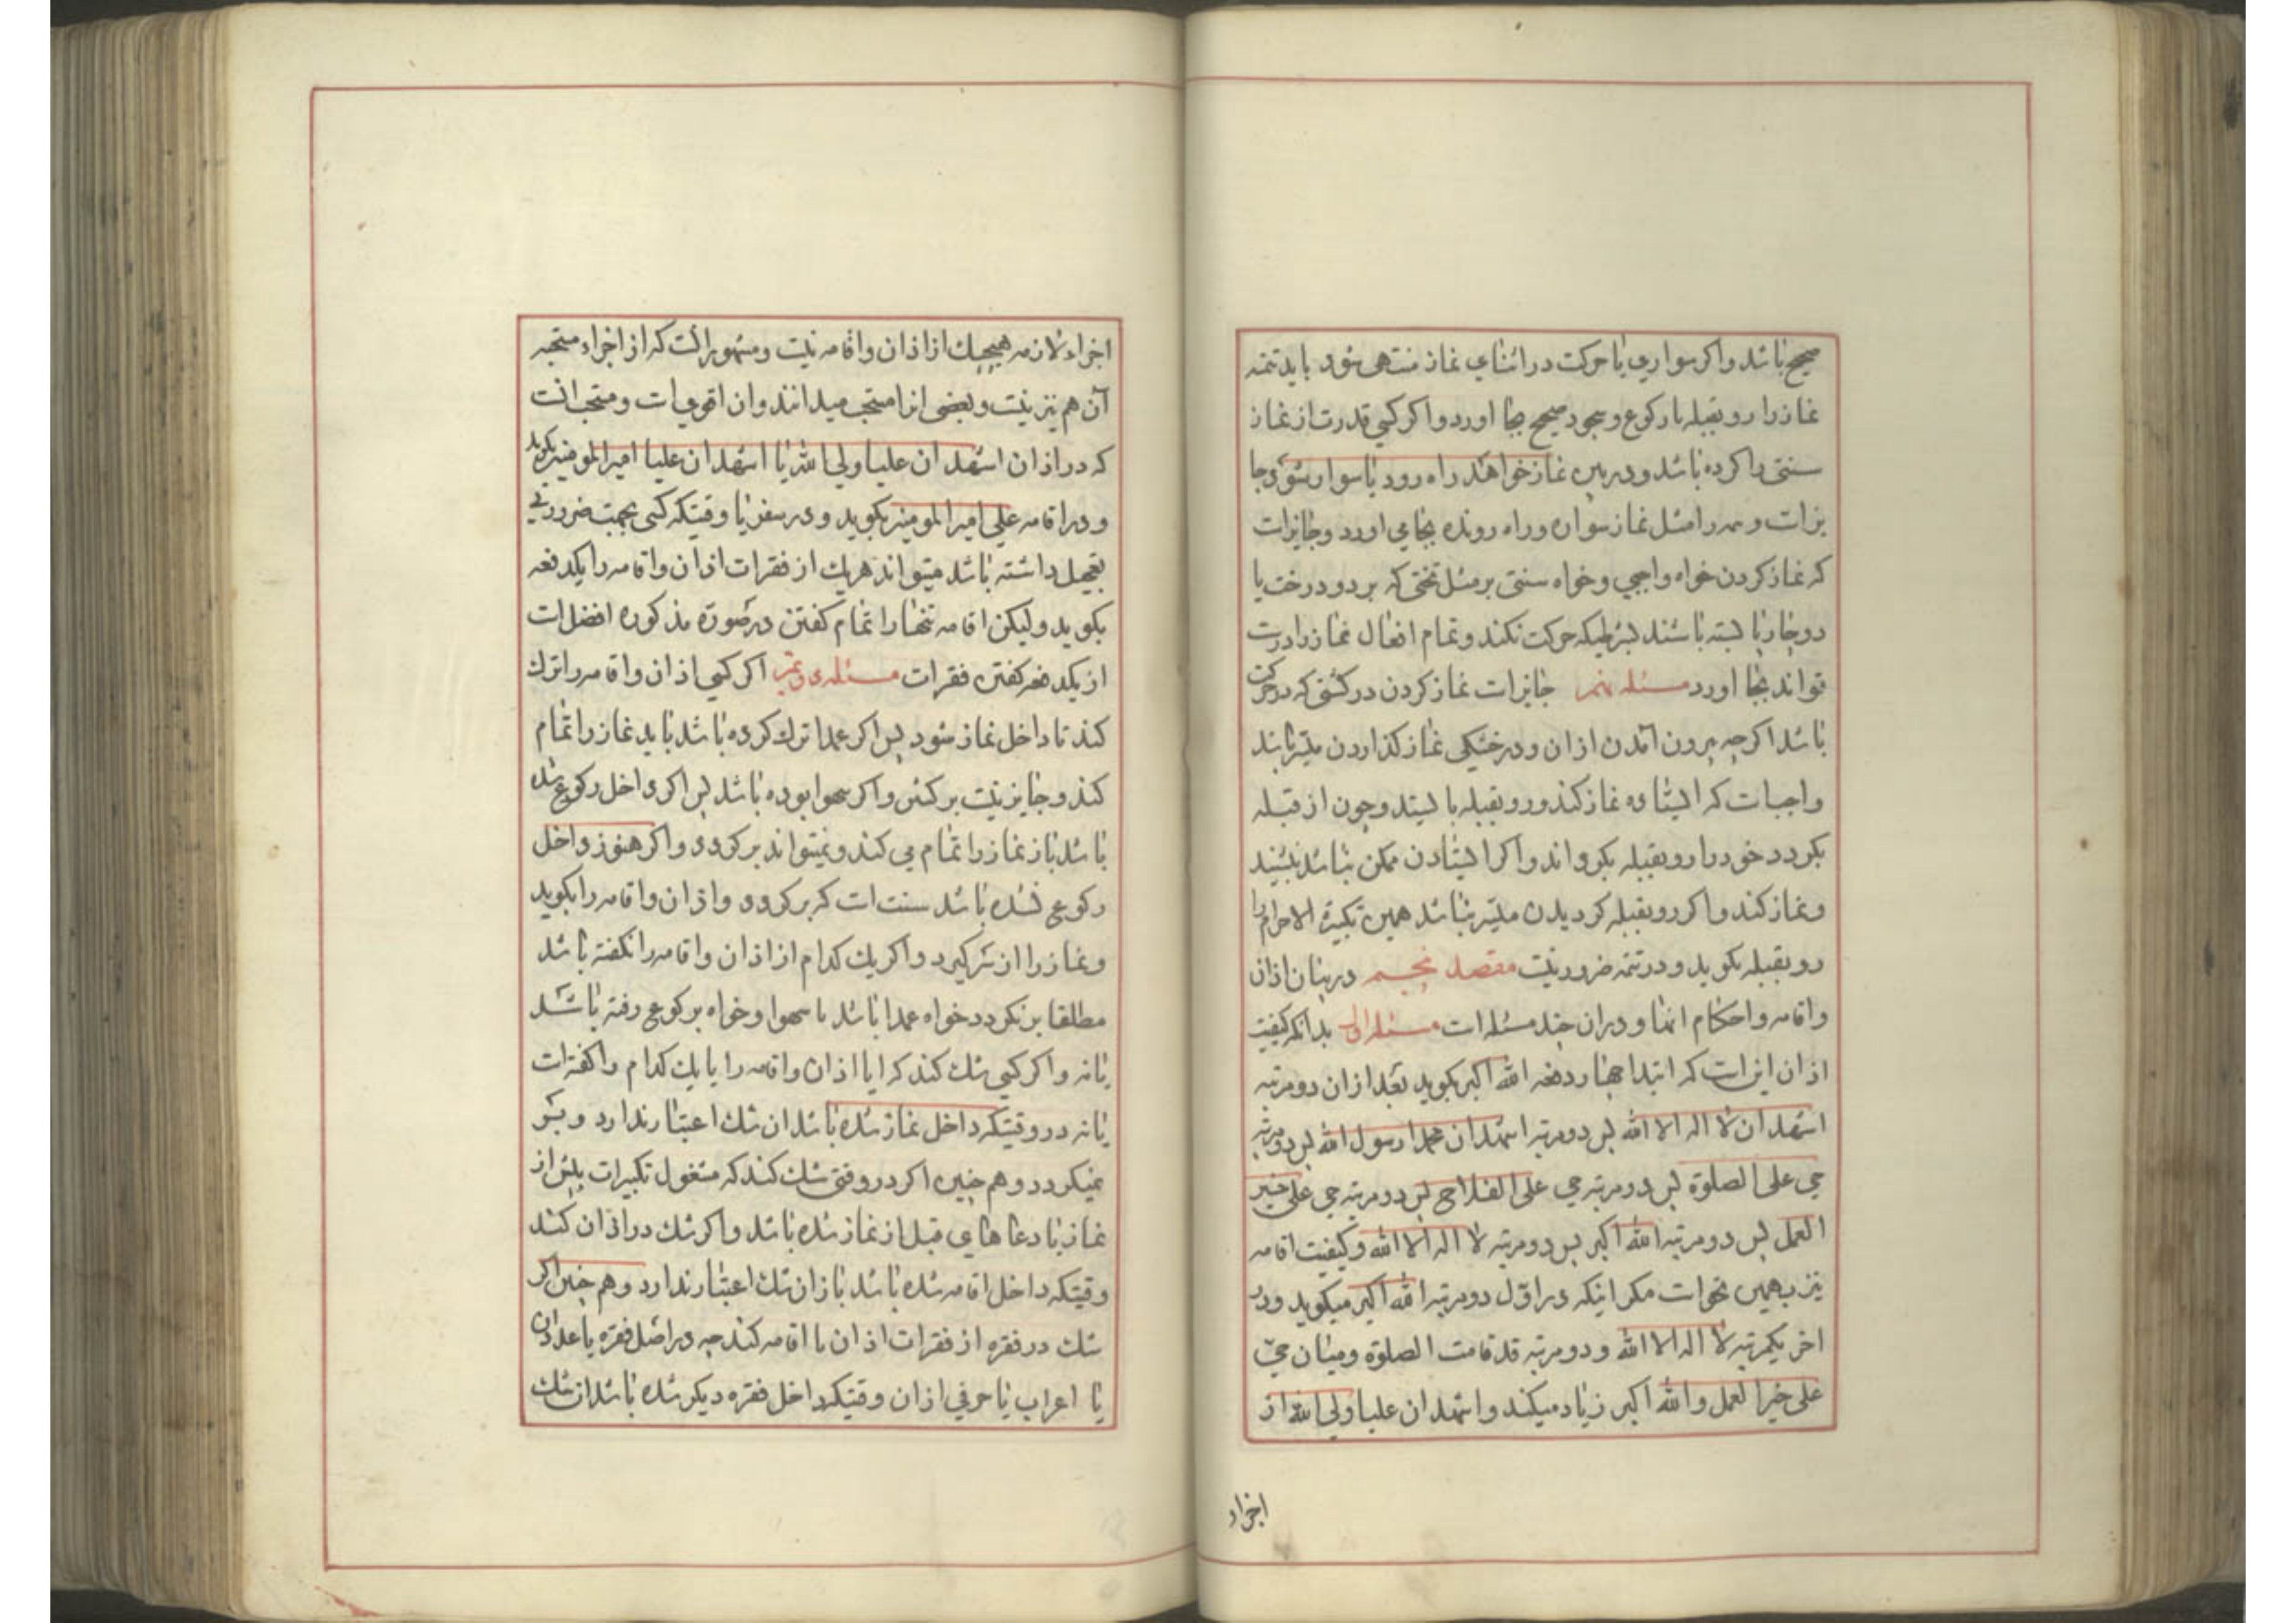 صحیح باشد و اکر سواری یا حرکت در اثنای نماز منتهی شود باید تتمه
نماز را رو بقبله با رکوع و سجود صحیح بجا اورد و اکر کسی قدرت از نماز
سنتی را کرده باشد و در بین نماز خواهد راه رود یا سوار شود جا
یز است و تتمه را مثل نماز سواره و راه رونده بجا می اورد و جایز است
که نماز کردن خواه واجبی و خواه سنتی بر مثل تختی که بر دو درخت یا
دو چارپا بسته باشند بشرطیکه حرکت نکند و تمام افعال نماز را درست
تواند بجا اورد مسئله نهم جایز است نماز کردن در کشتی که در حرکت
باشد اکرچه بیرون آمدن از ان و در خشکی نماز کذاردن میّسر باشد
واجبات که ایستاده نماز کند و رو بقبله بایستد و چون از قبله
بکردد خود را رو بقبله بکرداند و اکر ایستادن ممکن نباشد بنشیند
و نماز کند و اکر رو بقبله کردیدن میّسر نباشد همین تکبیرة الاحرام را
رو بقبله بکوید و در تتمه ضرور نیست مقصد پنجم در بیان اذان
و اقامه و احکام انها و در ان چند مسئله است مسئله اولی بدانکه کیفیت
اذان این است که ابتدا چهار دفعه الله اکبر بکوید بعد از ان دو مرتبه
اشهد ان لا اله الا الله پس دو مرتبه اشهد ان محمدا رسول الله پس دو مرتبه
حی علی الصلوة پس دو مرتبه حی علی الفلاح پس دو مرتبه حی علی خیر
العمل پس دو مرتبه الله اکبر پس دو مرتبه لا اله الا الله و کیفیت اقامه
نیز بهمین نحو است مکر اینکه در اوّل دو مرتبه الله اکبر میکوید و در
اخر یکمرتبه لا اله الا الله و دو مرتبه قد قامت الصلوة و میان حیّ
علی خیر العمل و الله اکبر زیاد میکند و اشهد ان علیا ولی الله از
اجزاء
اجزاء لازمه هیچیك از اذان و اقامه نیست و مشهور انست که از اجزاء مستحبه
آن هم نیز نیست و بعضی انرا مستحب میدانند و ان اقوی است و مستحب انست
که در اذان اشهد ان علیا ولی الله یا اشهد ان علیا امیر المومنین بکوید
و در اقامه علی امیر المومنین بکوید و در سفر یا وقتیکه کسی بجهت ضروریی
تعجیل داشته باشد میتواند هریك از فقرات اذان و اقامه را یکدفعه
بکوید ولیکن اقامه تنها را تمام کفتن در صورة مذکوره افضل است
از یکدفعه کفتن فقرات مسئله دوّیم اکر کسی اذان و اقامه را ترك
کند تا داخل نماز شود پس اکر عمدا ترك کرده باشد باید نماز را تمام
کند و جایز نیست برکشتن و اکر سهوا بوده باشد پس اکر داخل رکوع شده
باشد باز نماز را تمام می کند و نمیتواند برکردد و اکر هنوز داخل
رکوع نشده باشد سنت است که برکردد و اذان و اقامه را بکوید
و نماز را از سر کیرد و اکر یك کدام از اذان و اقامه را نکفته باشد
مطلقا برنکردد خواه عمدا باشد یا سهوا و خواه برکوع رفته باشد
یا نه و اکر کسی شك کند که ایا اذان و اقامه را یا یك کدام را کفته است
یا نه در وقتیکه داخل نماز شده باشد ان شك اعتبار ندارد و بر
نمیکردد و هم چنین اکر در وقتی شك کند که مشغول تکبیرات پیش از
نماز یا دعا های قبل از نماز شده باشد و اکر شك در اذان کند
وقتیکه داخل اقامه شده باشد باز ان شك اعتبار ندارد و هم چنین اکر
شك در فقره از فقرات اذان یا اقامه کند چه در اصل فقره یا عدد ان
یا اعراب یا حرفی از ان وقتیکه داخل فقره دیکر شده باشد ان شك